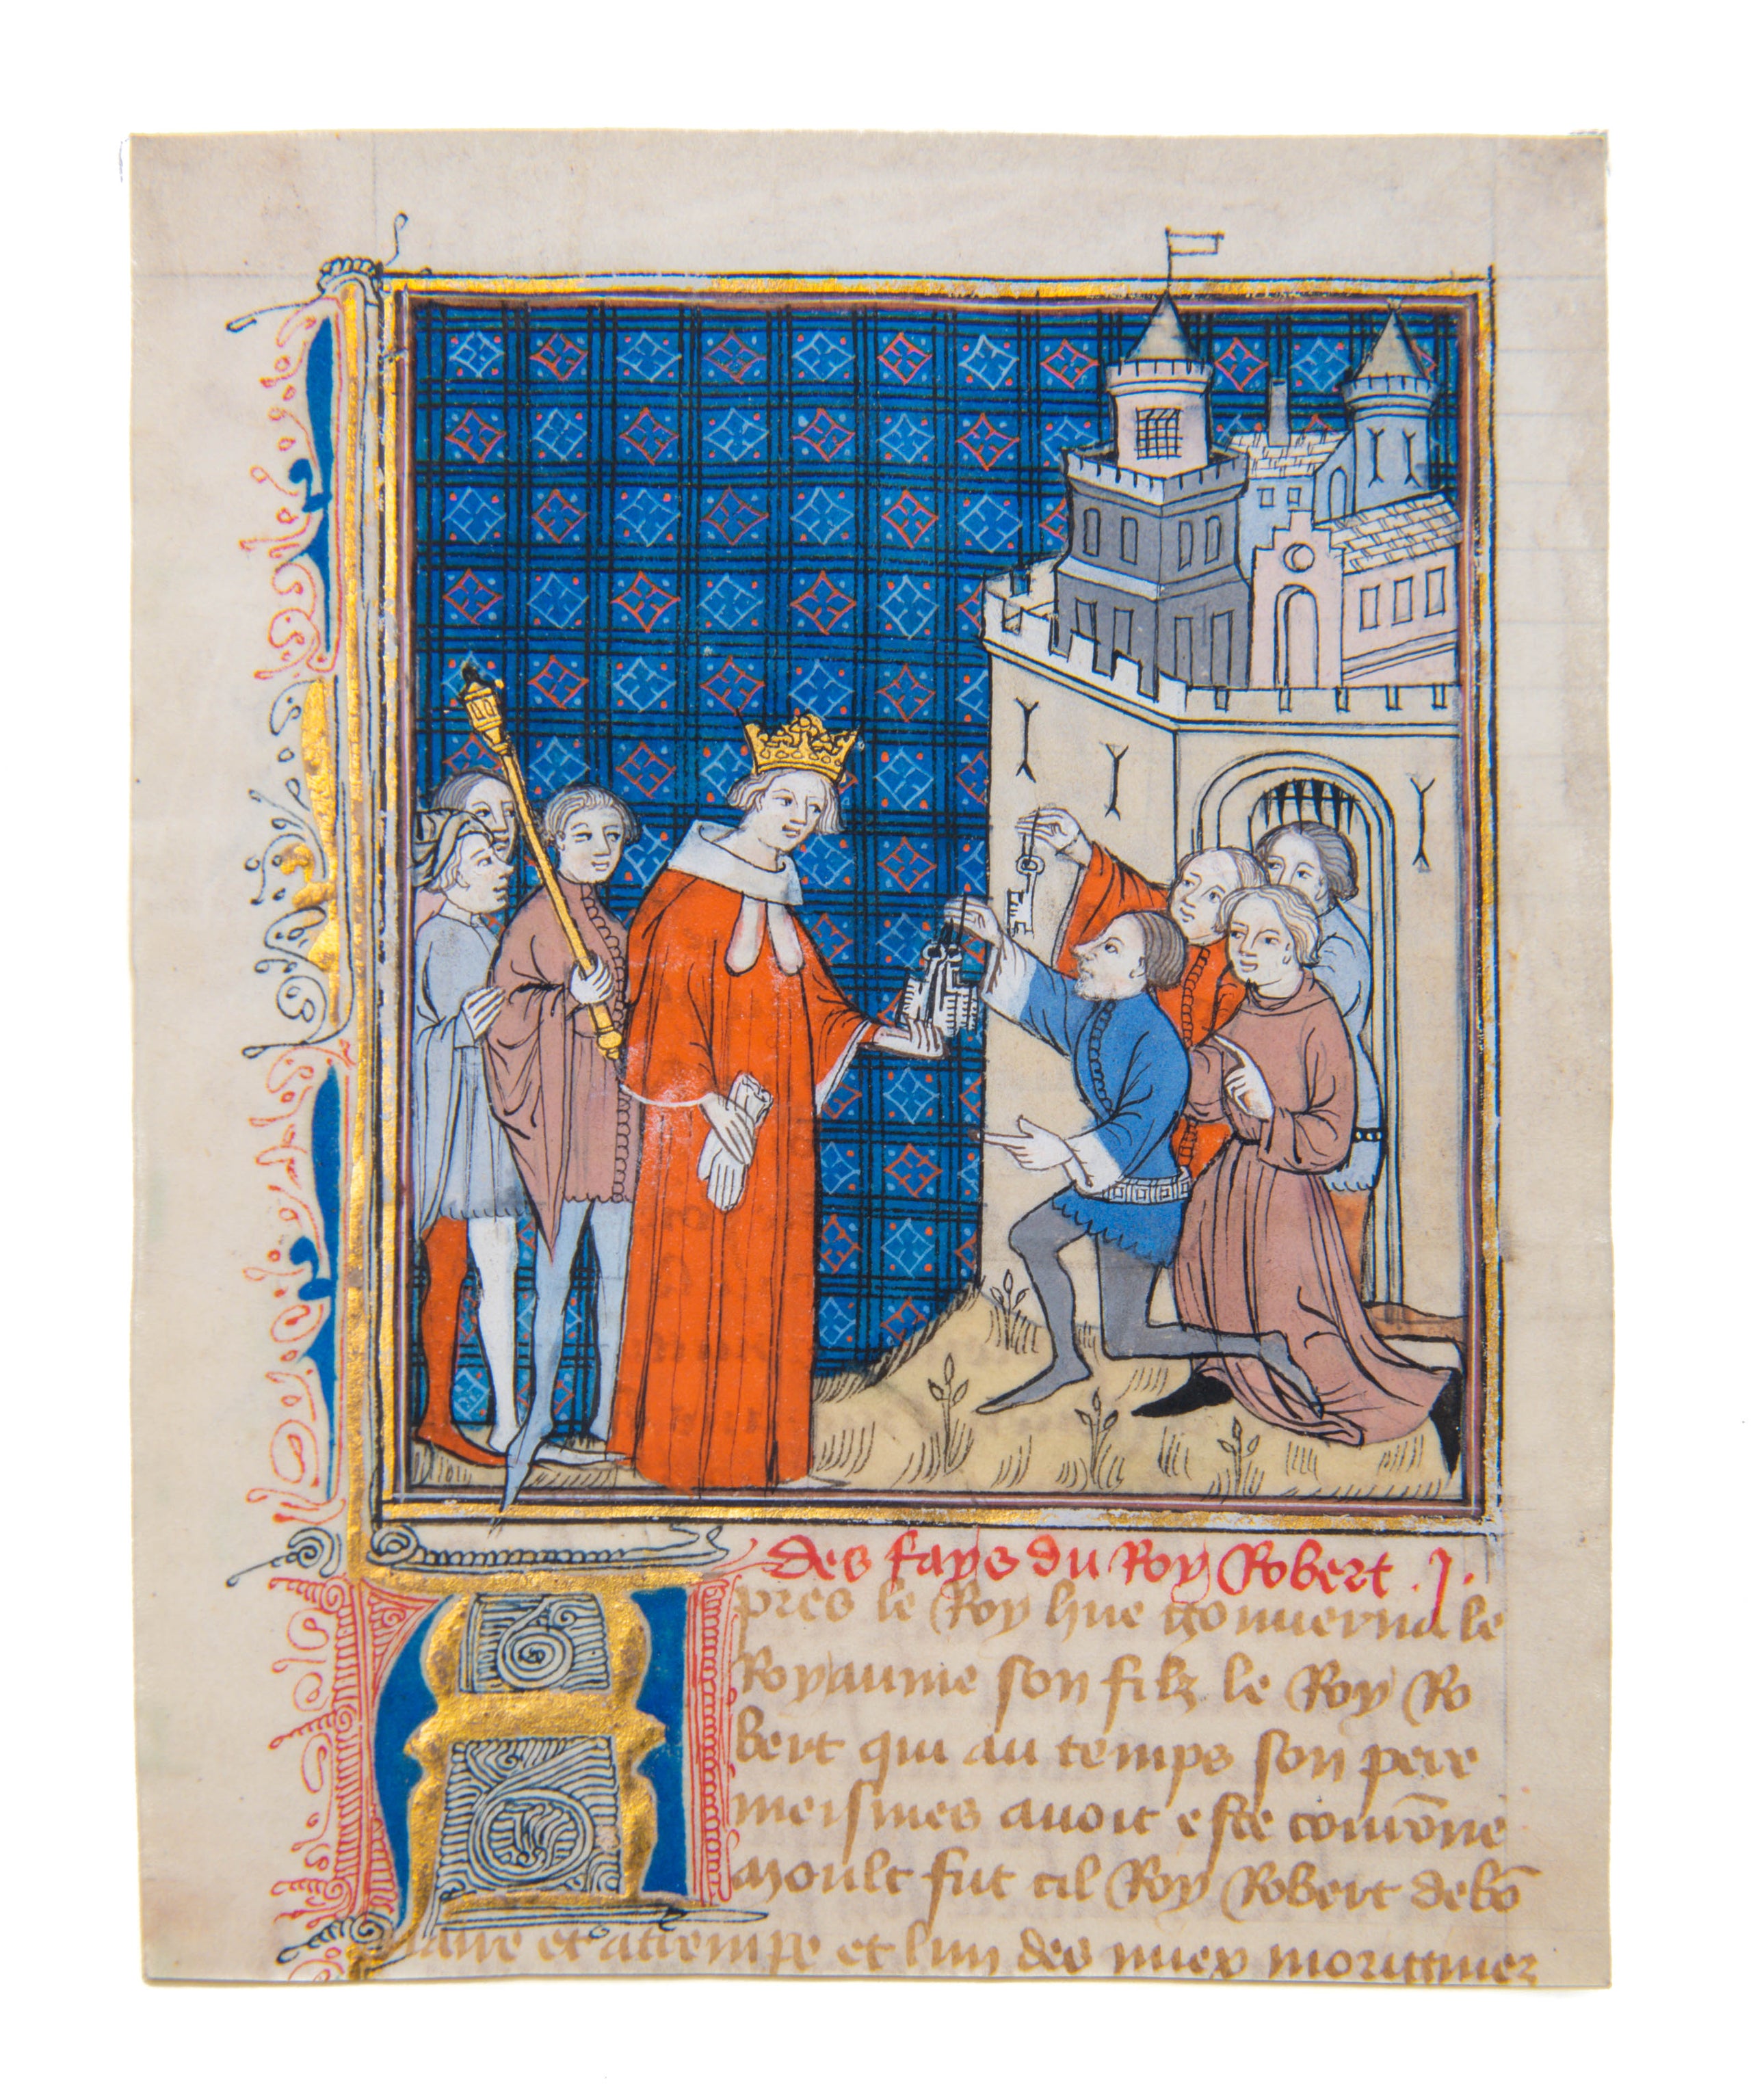 des fays du Roy Robert .J.
Apres le Roy hue gouuerna le
Royaume son filz le Roy Ro
bert qui au temps son pere
meismes auoit este couronne
Moult fut cil Roy Robert debō
aire et attempe et lun des miex moriginez